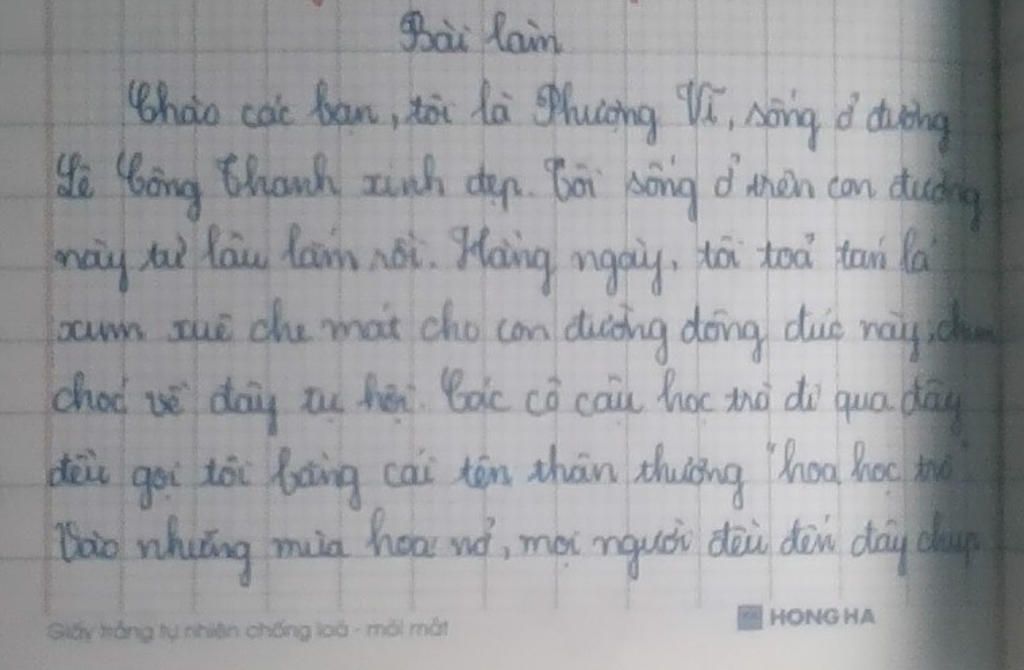 Bài làm
Chào các bạn, tôi là Phượng Vĩ, sống ở đường
Lê Công Thanh xinh đẹp. Tôi sống ở trên con đường
này từ lâu lắm rồi. Hàng ngày, tôi toả tán lá
xum xuê che mát cho con đường đông đúc này, chim
choć về đây tụ hội. Các cô cậu học trò đi qua đây
đều gọi tôi bằng cái tên thân thương "hoa học trò"
Vào những mùa hoa nở, mọi người đều đến đây chụp
Giấy trắng tự nhiên chống loá - mỏi mắt
HONG HA